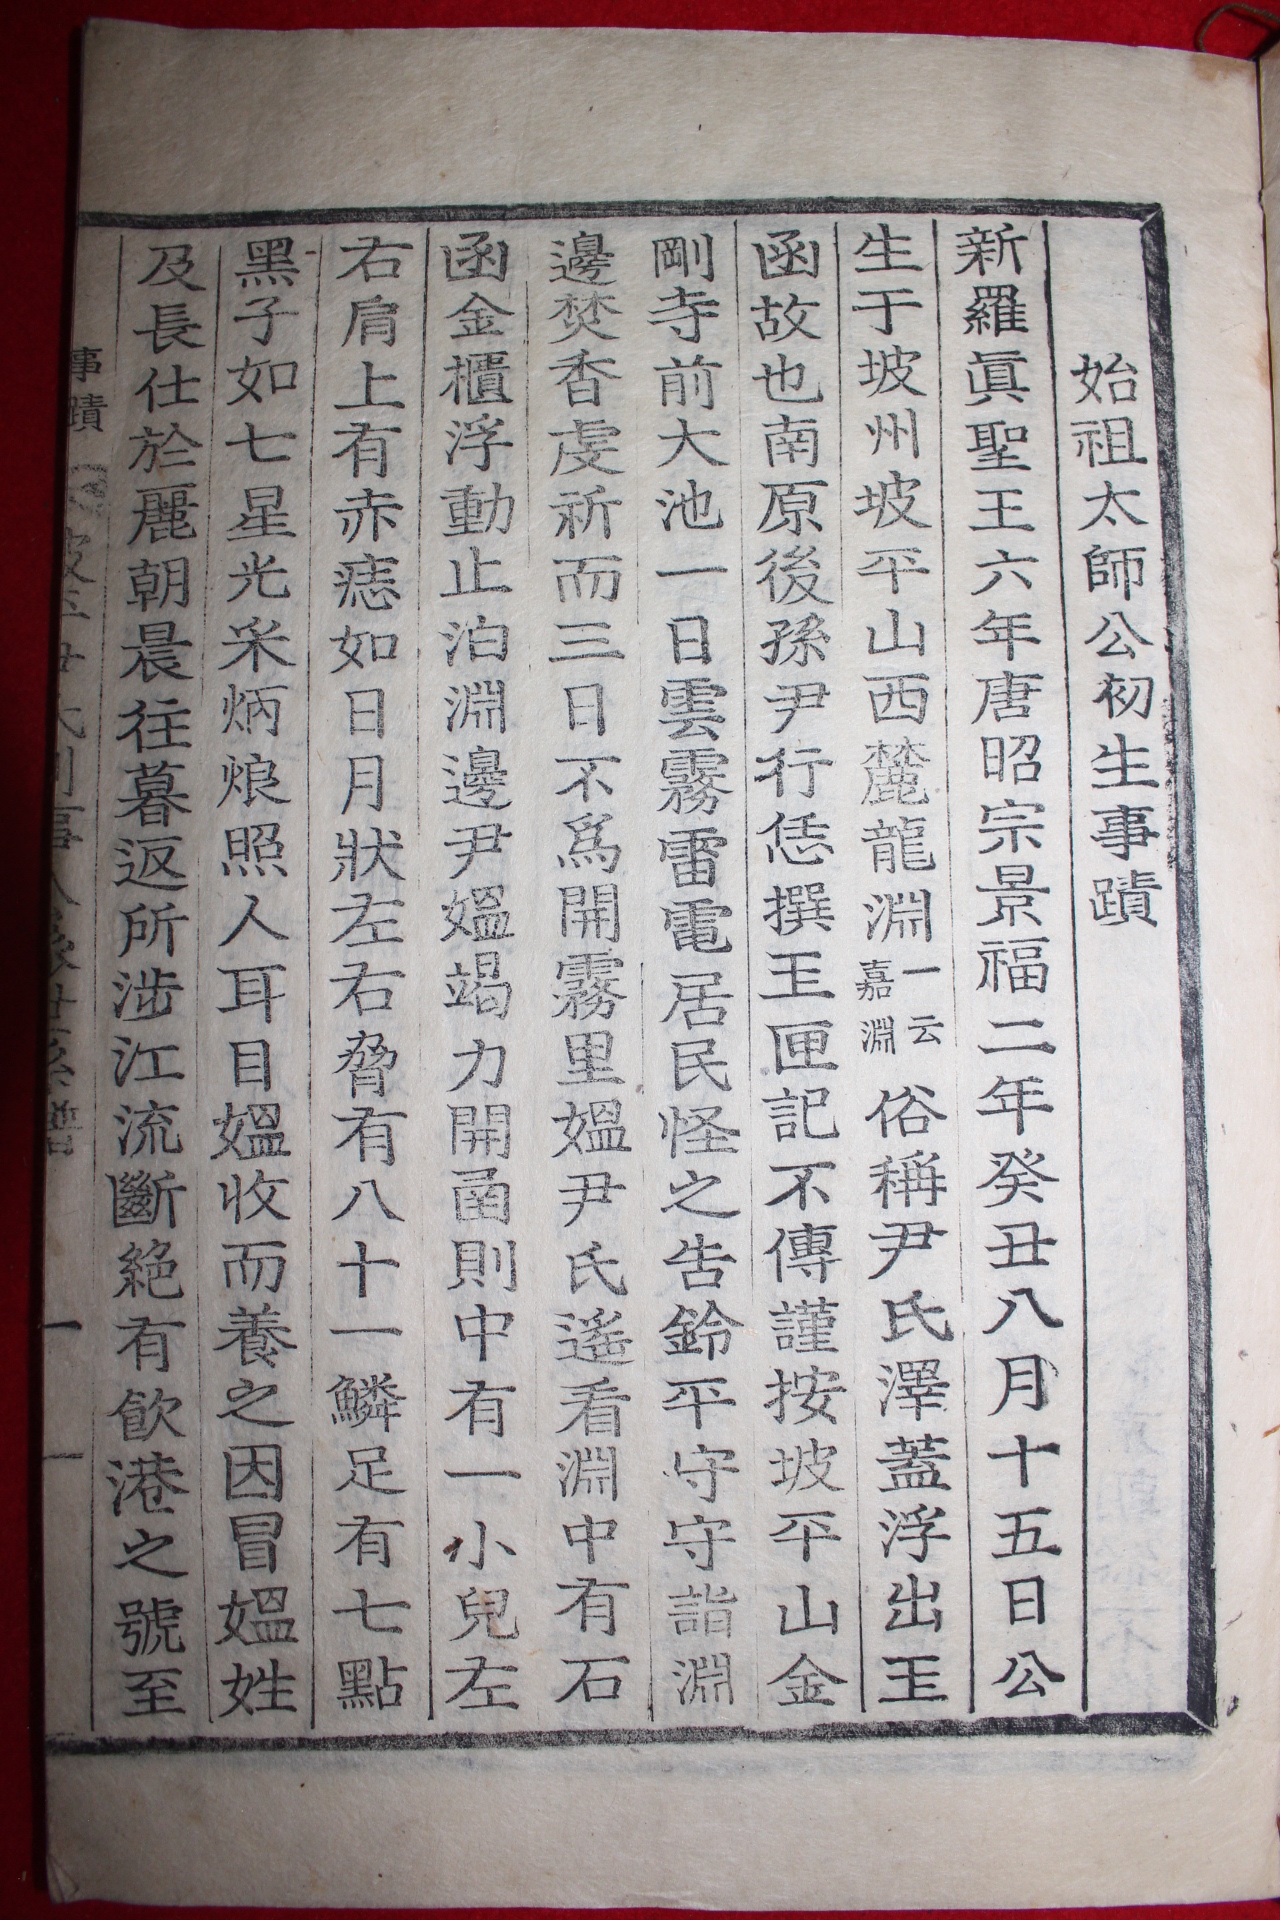 始祖太師公初生事蹟
新羅眞聖王六年唐昭宗景福二年癸丑八月十五日公
生于坡州坡平山西麓龍淵一云嘉淵俗稱尹氏澤蓋浮出玉
函故也南原後孫尹行恁撰玉匣記不傳謹按坡平山金
剛寺前大池一日雲霧雷電居民怪之告鈴平守守詣淵
邊焚香虔祈而三日不爲開霧里媼尹氏遙看淵中有石
函金櫃浮動止泊淵邊尹媼竭力開函則中有一小兒左
右肩上有赤痣如日月狀左右脅有八十一鱗足有七點
黑子如七星光釆炳烺照人耳目媼收而養之因冒媼姓
及長仕於麗朝晨往暮返所涉江流斷絶有飮港之號至
事蹟
一